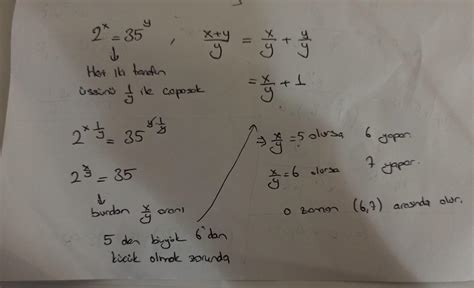 2^x = 35^y , (x+y)/y = x/y + y/y
↓
Her iki tarafın
üssünü 1/y ile çaparsak
= x/y + 1
2^(x·1/y) = 35^(y·1/y)
2^(x/y) = 35
↓
burdan x/y oranı
5 den büyük 6'dan
küçük olmak zorunda
⇒ x/y = 5 olursa 6 yapar.
x/y = 6 olursa 7 yapar.
o zaman (6,7) arasında olur.